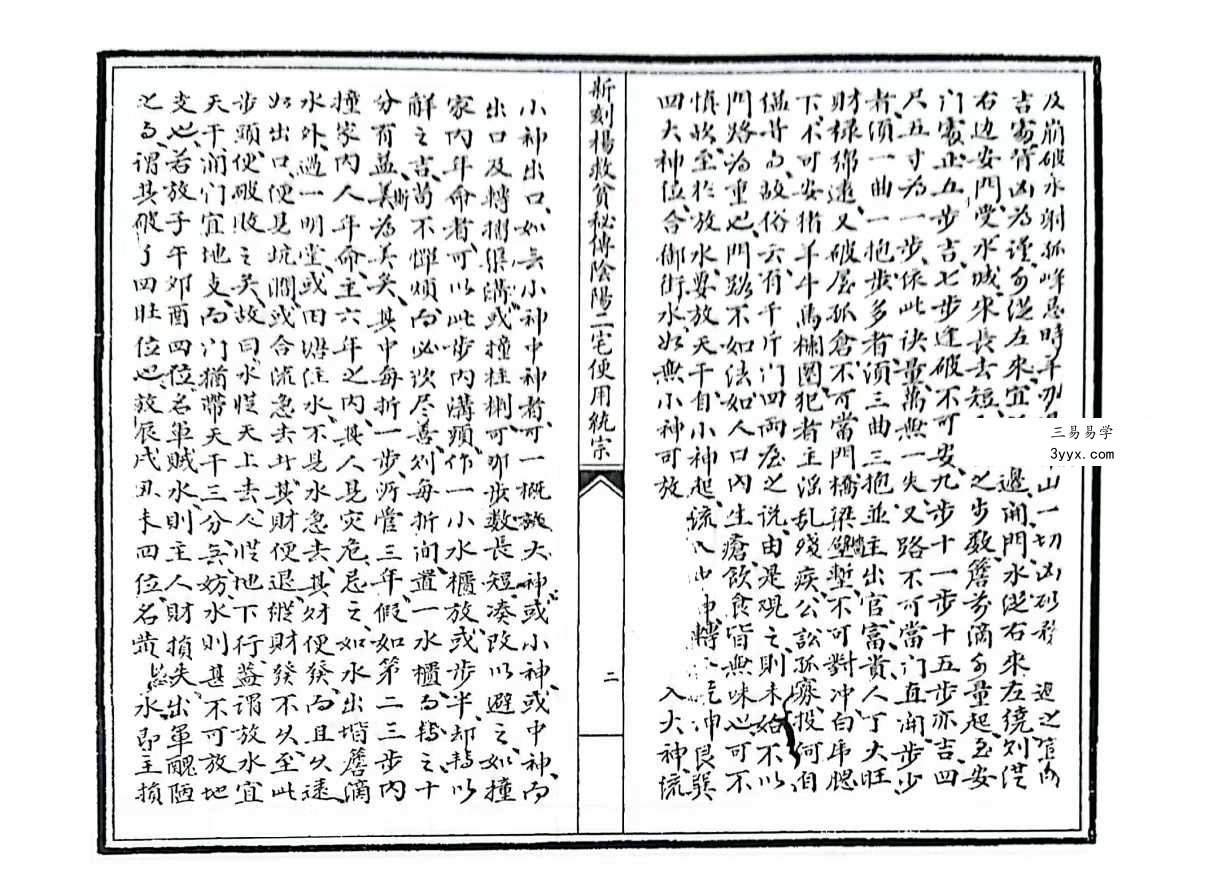 及崩破水射孤峰忌時年
山一切凶砂
避之
吉富背凶為謹
從左來宜
邊開門水從右來左繞
右邊安門受水城來長去短
之步数簷前滴
量起至安
门宜止五步吉七步逢破不可安九步十一步十五步亦吉四
尺五寸為一步依此诀量萬無一失又路不可當门直闹步少
者須一曲一抱步多者須三曲三抱並主出官富貴人丁大旺
財禄绵遠又破屋孤倉不可當門橋梁
塹不可對冲白虎腮
下不可安猪羊牛馬欄圈犯者主淫乱殘疾公訟孤寡投河自
缢
故俗云有千斤门四两屋之说由是观之則未始不以
門路為重也門路不如法如人口内生瘡飲食皆無味也可不
慎欤至於放水要放天干自小神起流
神轉
乾冲艮巽
四大神位合御街水如無小神可放
入大神流
新刻楊救貧秘傳陰陽二宅便用統宗
二
小神出口如無小神中神者可一概施大神或小神或中神
出口及轉摺渠溝或撞柱
可那步数長短凑改以避之如撞
家内年命者可以此步内溝頭作一小水櫃放或步半却轉以
解之吉苗不惮煩而必欲尽善
每折间置一水櫃而轉之十
分有益
美為美矣其中每折一步所管三年假如第二三步内
撞家内人年命主六年之内其人見灾危忌之如水出墙簷滴
水外過一明堂或田塘住水不見水急去其財便發而且久遠
如出口便見坑澗或合流急去片其財便退縱財發不久至此
步頭便破敗之矣故曰水從天上去人從地下行蓋謂放水宜
天干闹们宜地支而门猶帶天干三分無妨水則甚不可放地
支也若放子午卯酉四位名軍賊水則主人財損失出軍醜陋
之
謂其破了四旺位也放辰戌丑未四位名黄
水即主損
三易易学
3yyx.com